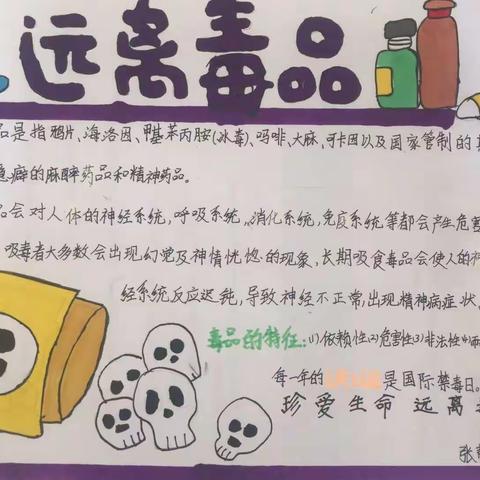 远离毒品
品是指鸦片、海洛因、甲基苯丙胺(冰毒)、吗啡、大麻、可卡因以及国家管制的其
瘾癖的麻醉药品和精神药品。
品会对人体的神经系统,呼吸系统,消化系统,免疫系统等都会产生危害
吸毒者大多数会出现幻觉及神情恍惚的现象,长期吸食毒品会使人的神
经系统反应迟钝,导致神经不正常,出现精神病症状、
毒品的特征:(1)依赖性(2)危害性(3)非法性(4)
每一年的6月26是国际禁毒日。
珍爱生命远离
张